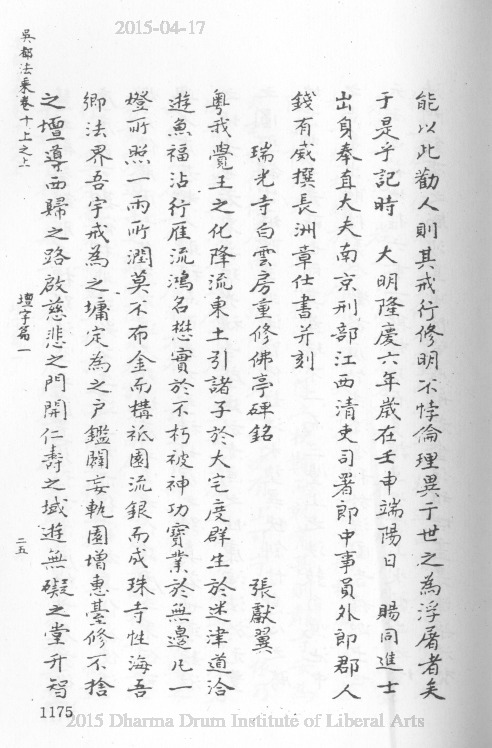 2015-04-17
能以此勸人則其戒行修明不悖倫理異于世之為浮屠者矣
于是乎記時　大明隆慶六年歲在壬申端陽日　賜同進士
出身奉直大夫南京刑部江西清吏司署郎中事員外郎郡人
錢有威撰長洲章仕書并刻
瑞光寺白雲房重修佛亭碑銘　張獻翼
粵我覺王之化降流東土引諸子於大宅度群生於迷津道洽
遊魚福沾行雁流鴻名懋實於不朽被神功寶業於無邊凡一
燈所照一雨所潤莫不布金而構祇園流銀而成珠寺性海吾
鄉法界吾宇戒為之墉定為之戶鑑闢妄軌園增惠臺修不捨
之壇導西歸之路啟慈悲之門開仁壽之域遊無礙之堂升智
吳都法乘卷十上之上
壇字篇一
二五
1175
2015 Dharma Drum Institute of Liberal Arts